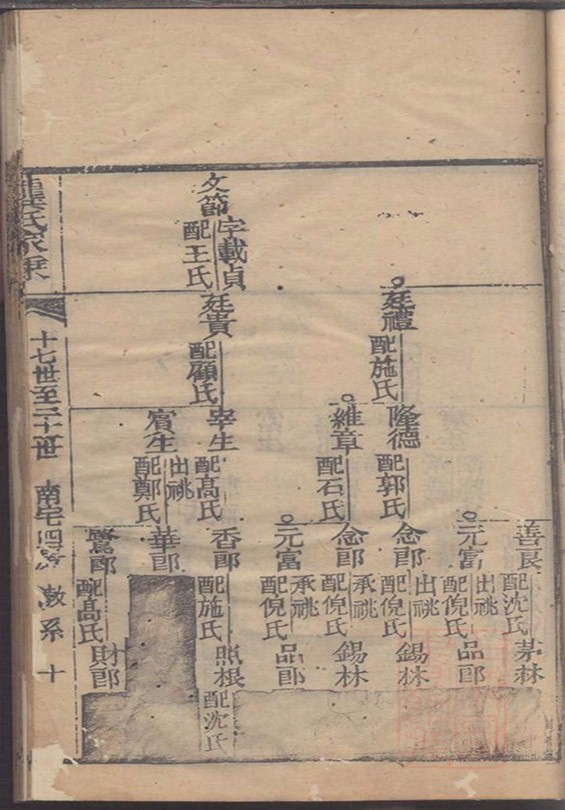 善良
配沈氏
茅林
元富
出祧
配倪氏
品郎
廷禮
配施氏
隆德
配郭氏
念郎
出祧
配倪氏
錫林
維章
配石氏
念郎
承祧
配倪氏
錫林
元富
承祧
配倪氏
品郎
文節
字載貞
配王氏
廷貴
配顧氏
宰生
配高氏
香郎
配施氏
照根
配沈氏
賓生
出祧
配鄭氏
華郎
鶯郎
配高氏
財郎
龔氏家乘
十七世至二十世
南宅四房
敦系
十